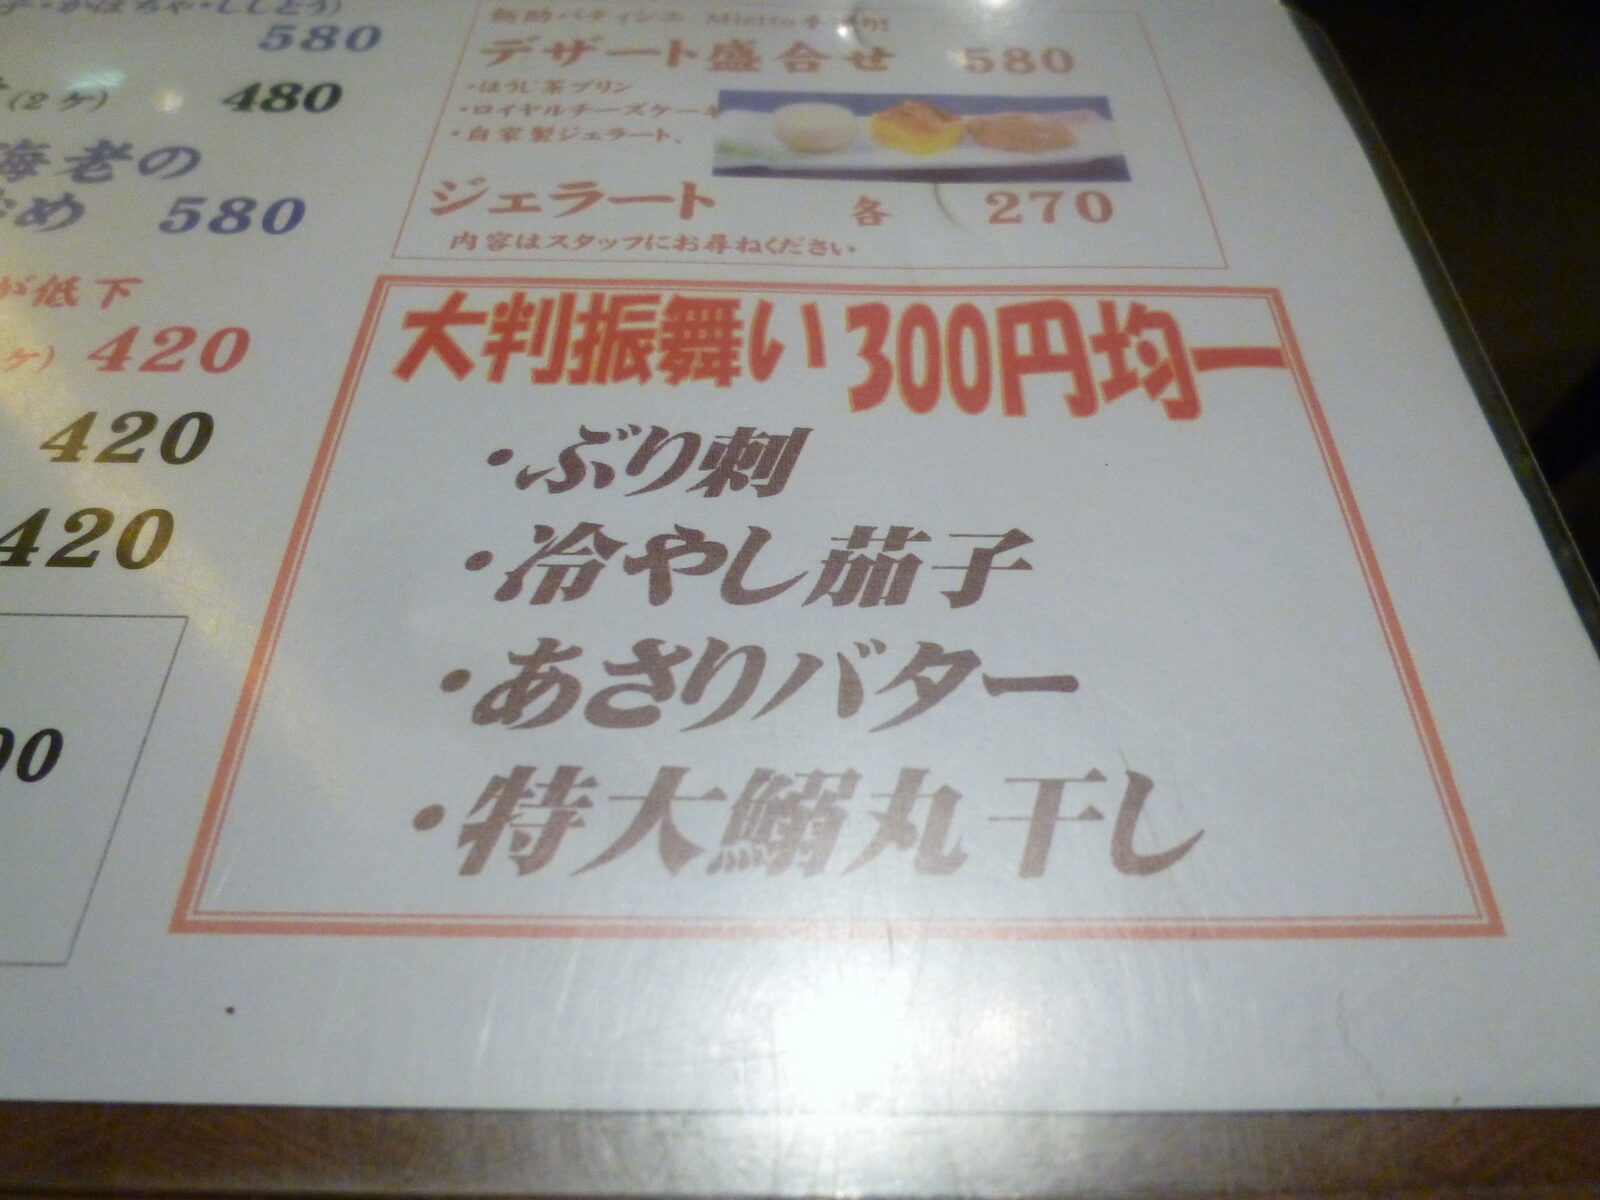 かぼちゃ・ししとう)
580
(2ケ) 480
海老の
580
が低下
ケ) 420
420
420
00
デザート盛合せ 580
・ほうじ茶プリン
・ロイヤルチーズケーキ
・自家製ジェラート、
ジェラート 各 270
内容はスタッフにお尋ねください
大判振舞い300円均一
・ぶり刺
・冷やし茄子
・あさりバター
・特大鰯丸干し